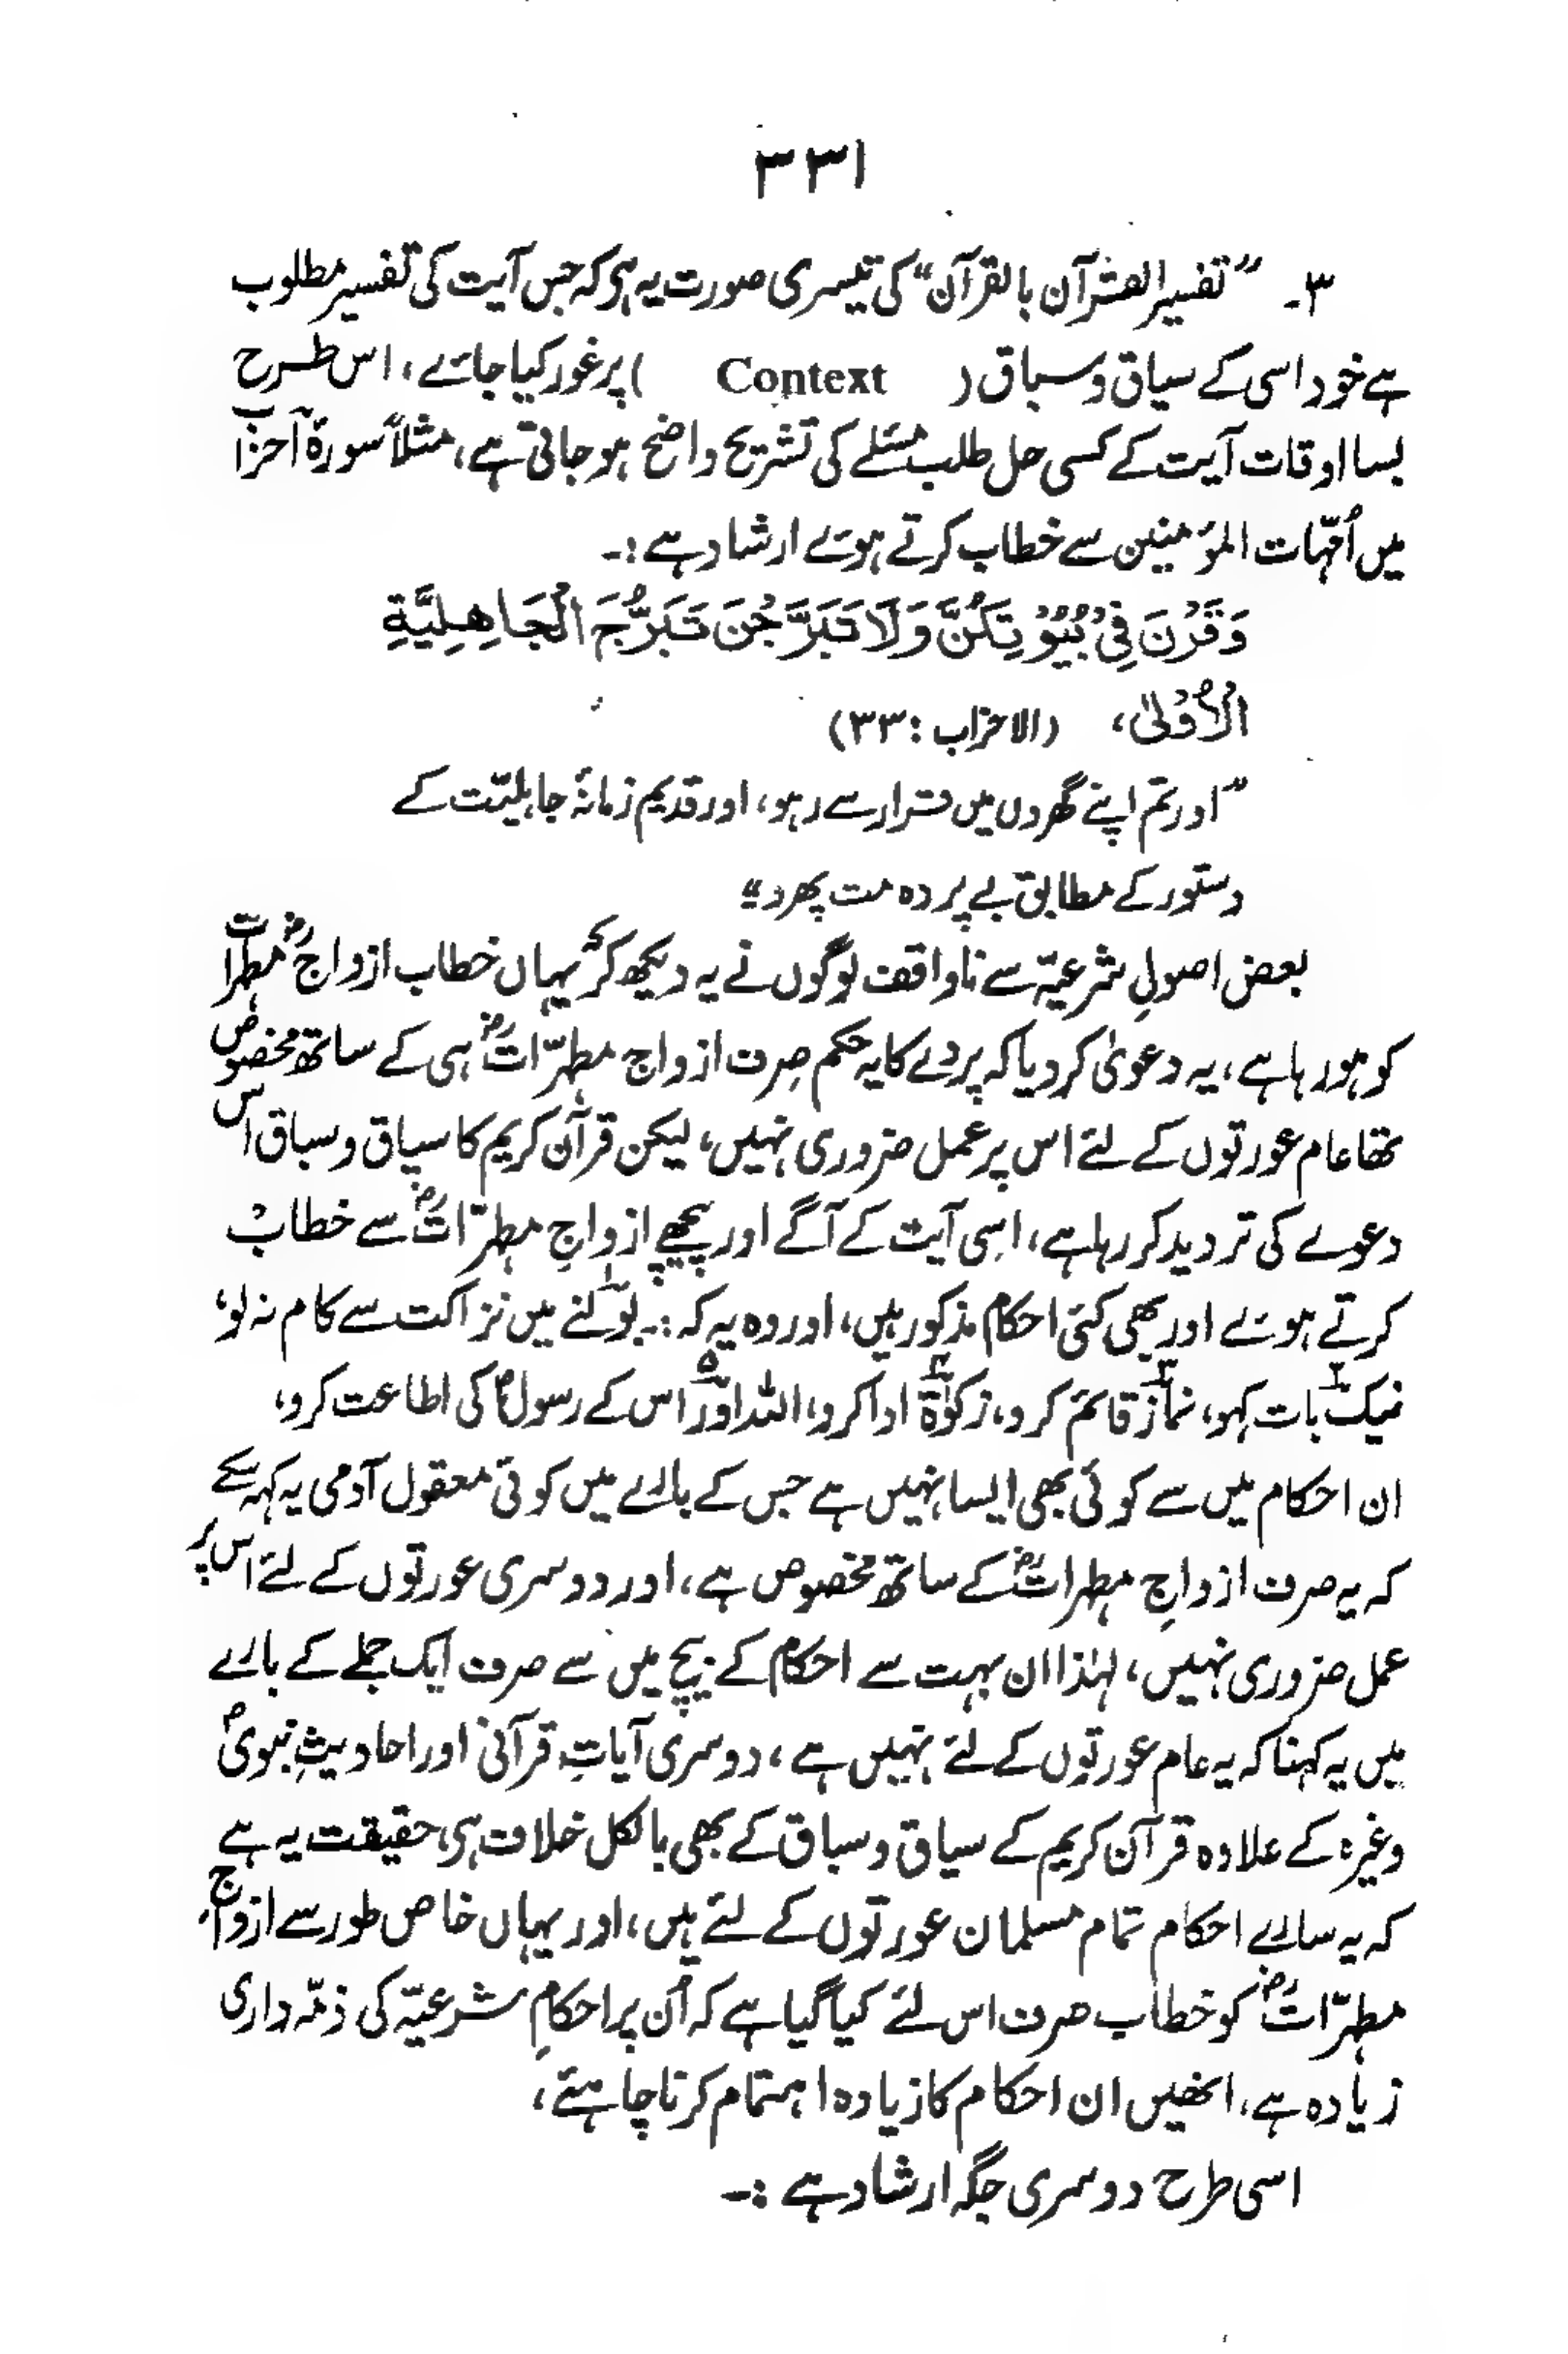 ۳۳۱
۳۔ ”تفسیر القرآن بالقرآن“ کی تیسری صورت یہ ہو کہ جس آیت کی تفسیر مطلوب
ہے خود اسی کے سیاق و سباق ( Context ) پر غور کیا جائے، اس طرح
بسا اوقات آیت کے کسی حل طلب مسئلے کی تشریح واضح ہو جاتی ہے، مثلاً سورۂ احزاب
میں اُمّہات المؤمنین سے خطاب کرتے ہوئے ارشاد ہے :۔
وَقَرْنَ فِیْ بُیُوْتِکُنَّ وَلَا تَبَرَّجْنَ تَبَرُّجَ الْجَاهِلِیَّةِ
الْاُوْلٰی، (الاحزاب : ۳۳)
”اور تم اپنے گھروں میں قرار سے رہو، اور قدیم زمانۂ جاہلیّت کے
دستور کے مطابق بے پردہ مت پھرو“
بعض اصولِ شرعیّہ سے ناواقف لوگوں نے یہ دیکھ کر کہ یہاں خطاب ازواجؓ مطہرات
کو ہو رہا ہے، یہ دعویٰ کر دیا کہ پردے کا یہ حکم صِرف ازواج مطہّراتؓ ہی کے ساتھ مخصوص
تھا عام عورتوں کے لئے اس پر عمل ضروری نہیں، لیکن قرآن کریم کا سیاق و سباق اس
دعوے کی تردید کر رہا ہے، اسی آیت کے آگے اور پیچھے ازواجِ مطہرّاتؓ سے خطاب
کرتے ہوئے اور بھی کئی احکام مذکور ہیں، اور وہ یہ کہ :۔ بولنے۱ میں نزاکت سے کام نہ لو،
نیک۲ بات کہو، نماز۳ قائم کرو، زکوٰۃ۴ ادا کرو، اللہ اور۵ اس کے رسولؐ کی اطاعت کرو،
ان احکام میں سے کوئی بھی ایسا نہیں ہے جس کے بارے میں کوئی معقول آدمی یہ کہہ سکے
کہ یہ صرف ازواجِ مطہراتؓ کے ساتھ مخصوص ہے، اور دوسری عورتوں کے لئے اس پر
عمل ضروری نہیں، لہٰذا ان بہت سے احکام کے بیچ میں سے صرف ایک جملے کے بارے
میں یہ کہنا کہ یہ عام عورتوں کے لئے نہیں ہے، دوسری آیاتِ قرآنی اور احادیثِ نبویؐ
وغیرہ کے علاوہ قرآن کریم کے سیاق و سباق کے بھی بالکل خلاف ہی، حقیقت یہ ہے
کہ یہ سارے احکام تمام مسلمان عورتوں کے لئے ہیں، اور یہاں خاص طور سے ازواج
مطہرّاتؓ کو خطاب صرف اس لئے کیا گیا ہے کہ اُن پر احکامِ شرعیّہ کی ذمّہ داری
زیادہ ہے، انھیں ان احکام کا زیادہ اہتمام کرنا چاہئے،
اسی طرح دوسری جگہ ارشاد ہے :۔